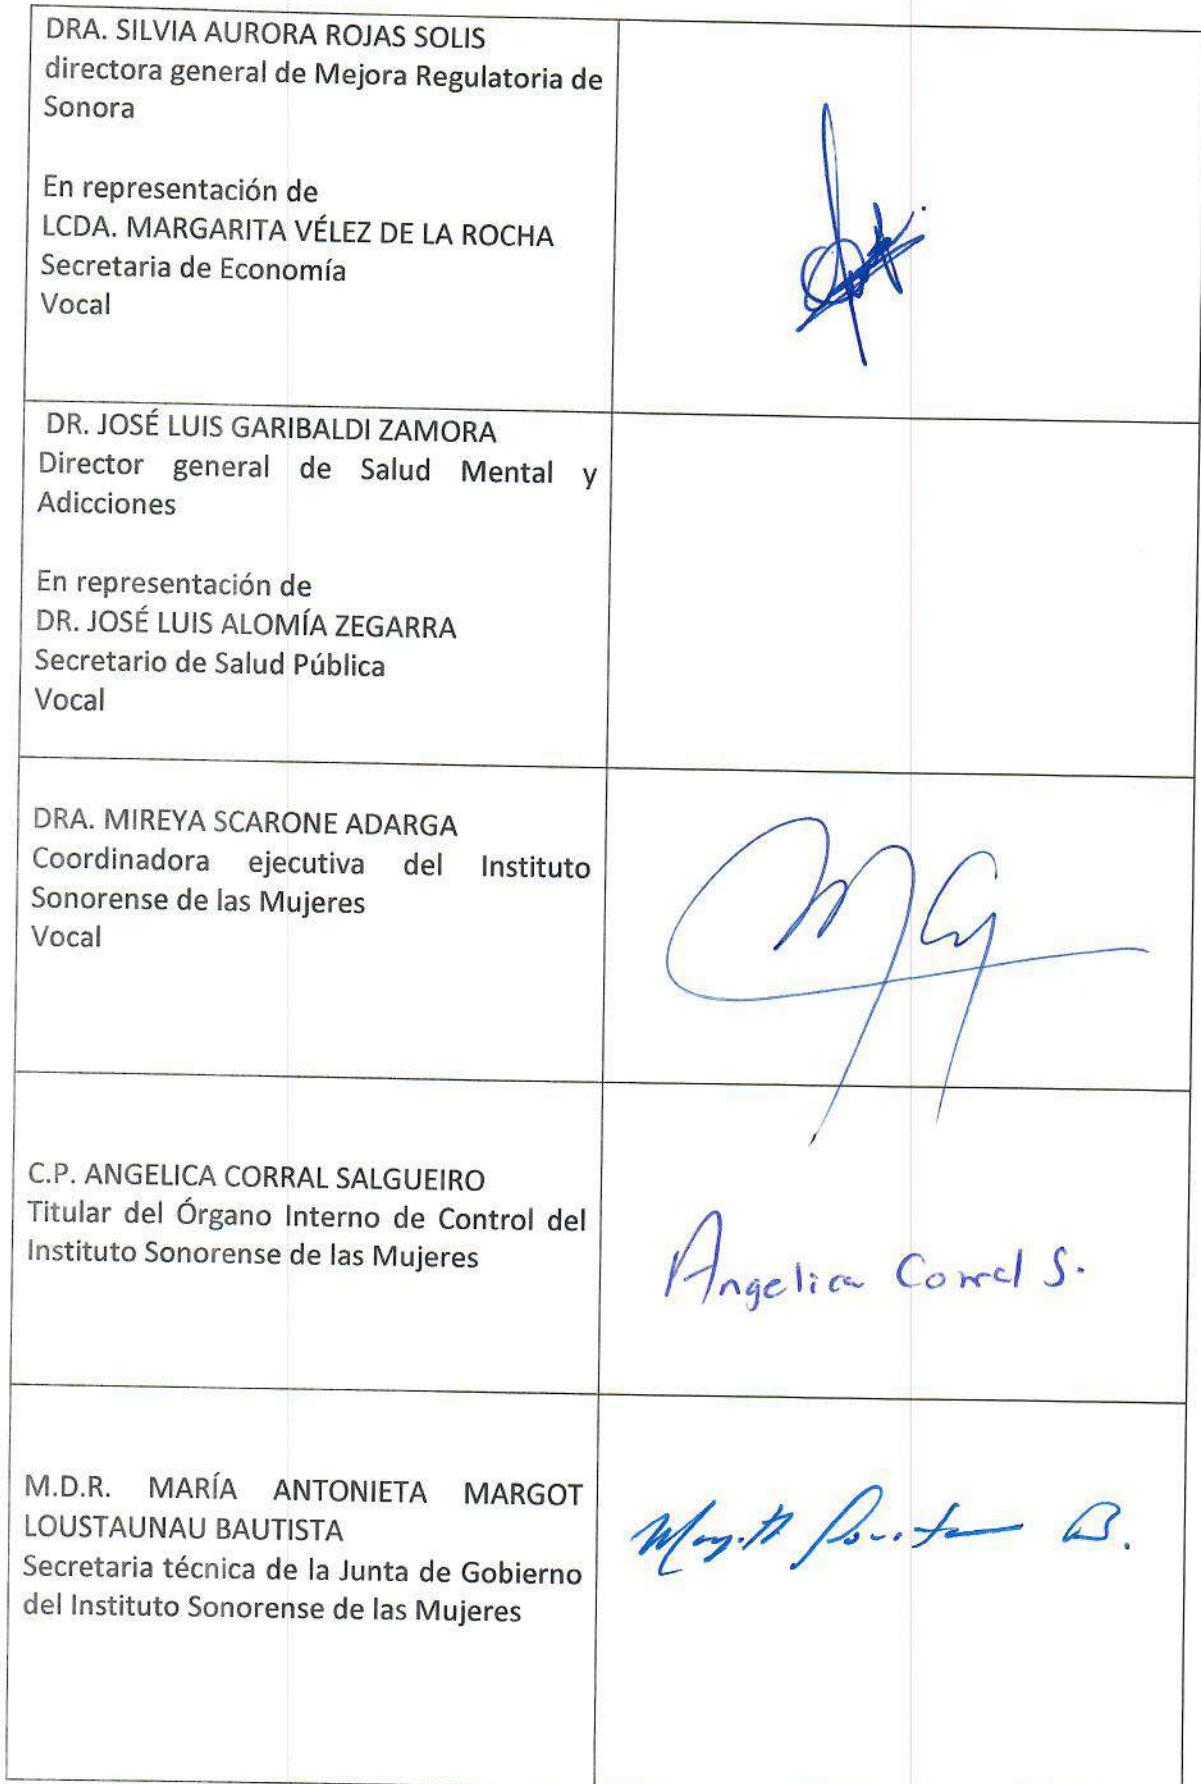 DRA. SILVIA AURORA ROJAS SOLIS
directora general de Mejora Regulatoria de
Sonora
En representación de
LCDA. MARGARITA VÉLEZ DE LA ROCHA
Secretaria de Economía
Vocal
DR. JOSÉ LUIS GARIBALDI ZAMORA
Director general de Salud Mental y
Adicciones
En representación de
DR. JOSÉ LUIS ALOMÍA ZEGARRA
Secretario de Salud Pública
Vocal
DRA. MIREYA SCARONE ADARGA
Coordinadora ejecutiva del Instituto
Sonorense de las Mujeres
Vocal
C.P. ANGELICA CORRAL SALGUEIRO
Titular del Órgano Interno de Control del
Instituto Sonorense de las Mujeres
Angelica Corral S.
M.D.R. MARÍA ANTONIETA MARGOT
LOUSTAUNAU BAUTISTA
Secretaria técnica de la Junta de Gobierno
del Instituto Sonorense de las Mujeres
B.